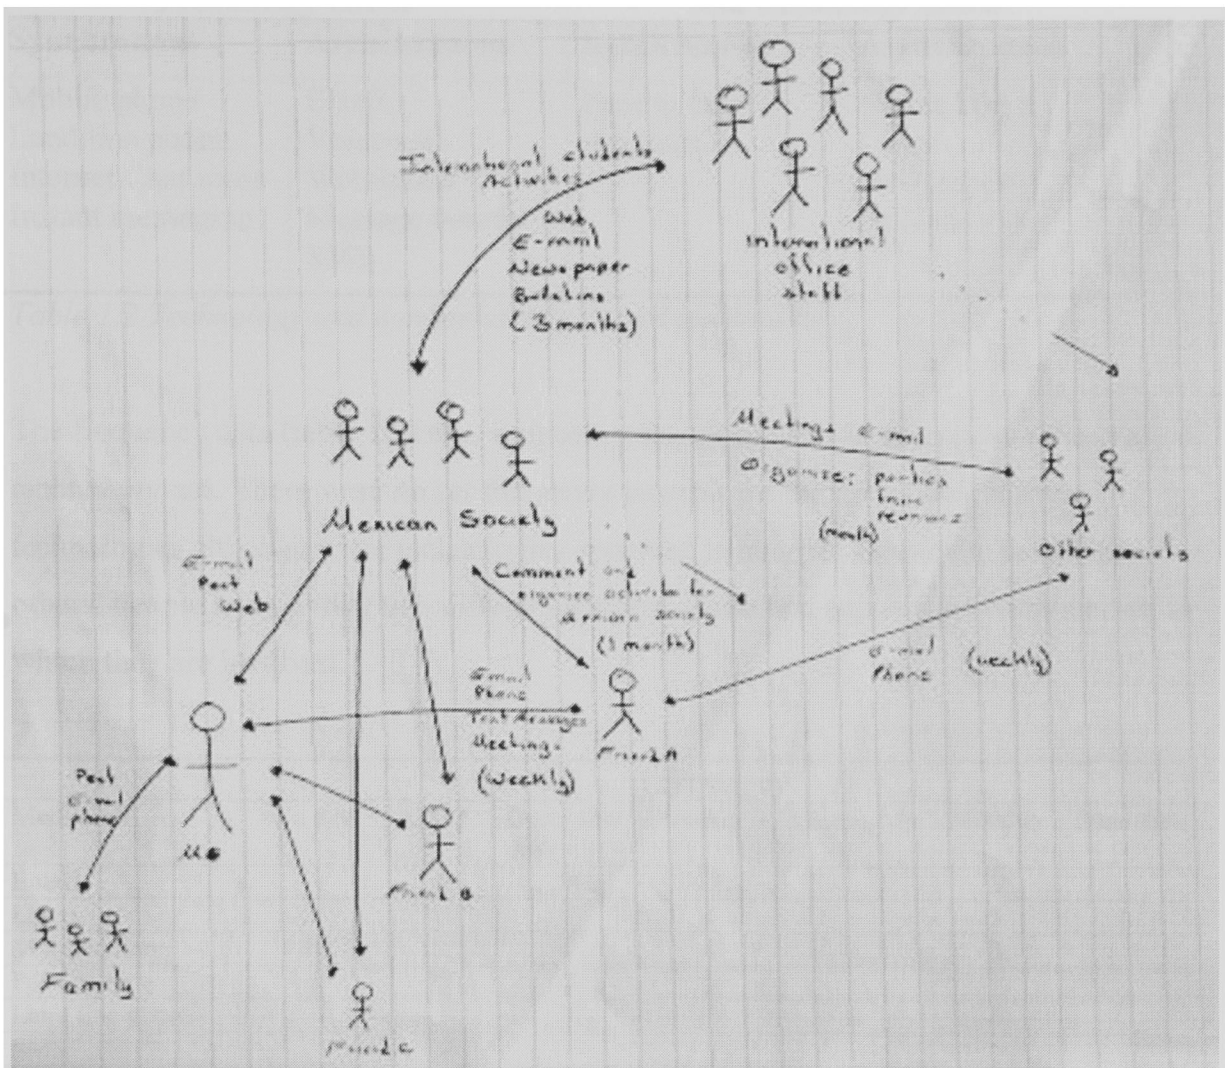 International students
Activities
Web
E-mail
Newspaper
(3 months)
International
office
staff
Meetings E-mail
Organise: parties
(month)
Other society
Mexican Society
E-mail
Post
Web
Comment and
organise activities for
Mexican society
(1 month)
E-mail
Phone
(weekly)
E-mail
Phone
Text Messages
Meetings
(weekly)
Friend A
Post
E-mail
phone
Me
Friend B
Family
Friend C